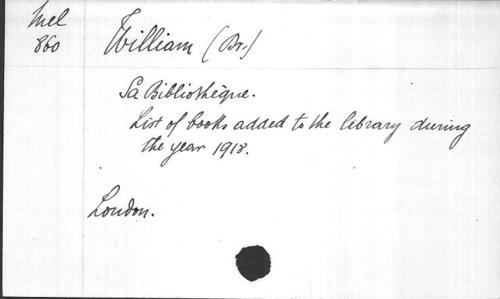 Mel
860
William (Dr.)
Sa Bibliothèque.
List of books added to the library during
the year 1918.
London.